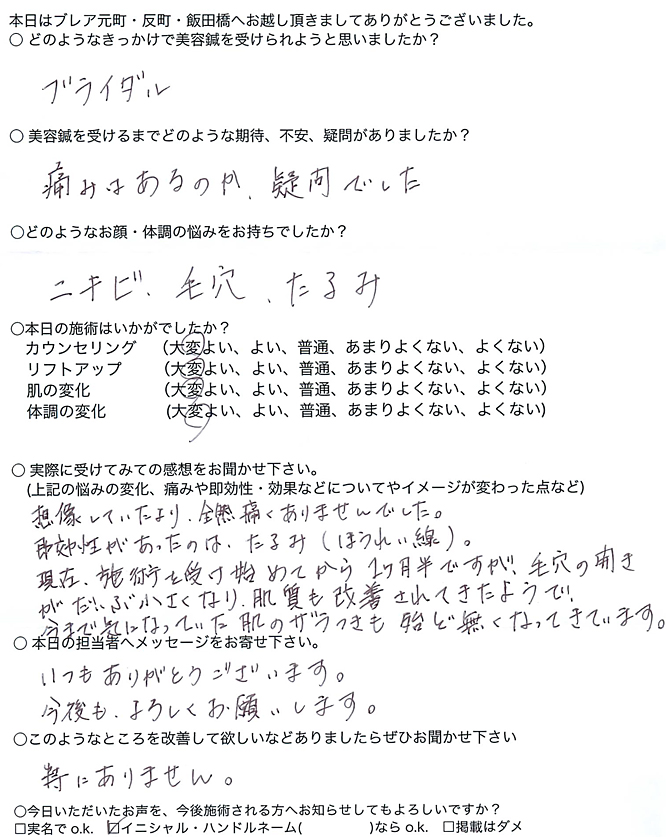 本日はブレア元町・反町・飯田橋へお越し頂きましてありがとうございました。
○ どのようなきっかけで美容鍼を受けられようと思いましたか？
ブライダル
○ 美容鍼を受けるまでどのような期待、不安、疑問がありましたか？
痛みはあるのか、疑問でした
○どのようなお顔・体調の悩みをお持ちでしたか？
ニキビ、毛穴、たるみ
○本日の施術はいかがでしたか？
カウンセリング （大変よい、よい、普通、あまりよくない、よくない）
リフトアップ （大変よい、よい、普通、あまりよくない、よくない）
肌の変化 （大変よい、よい、普通、あまりよくない、よくない）
体調の変化 (大変よい、よい、普通、あまりよくない、よくない)
○ 実際に受けてみての感想をお聞かせ下さい。
(上記の悩みの変化、痛みや即効性・効果などについてやイメージが変わった点など)
想像していたより、全然痛くありませんでした。
即効性があったのは、たるみ（ほうれい線）。
現在、施術を受け始めてから1ヶ月半ですが、毛穴の開き
がだいぶ小さくなり、肌質も改善されてきたようで、
今まで気になっていた肌のザラつきも殆ど無くなってきています。
○ 本日の担当者へメッセージをお寄せ下さい。
いつもありがとうございます。
今後も、よろしくお願いします。
○このようなところを改善して欲しいなどありましたらぜひお聞かせ下さい
特にありません。
○今日いただいたお声を、今後施術される方へお知らせしてもよろしいですか？
□実名で o.k. ☑イニシャル・ハンドルネーム( )なら o.k. □掲載はダメ